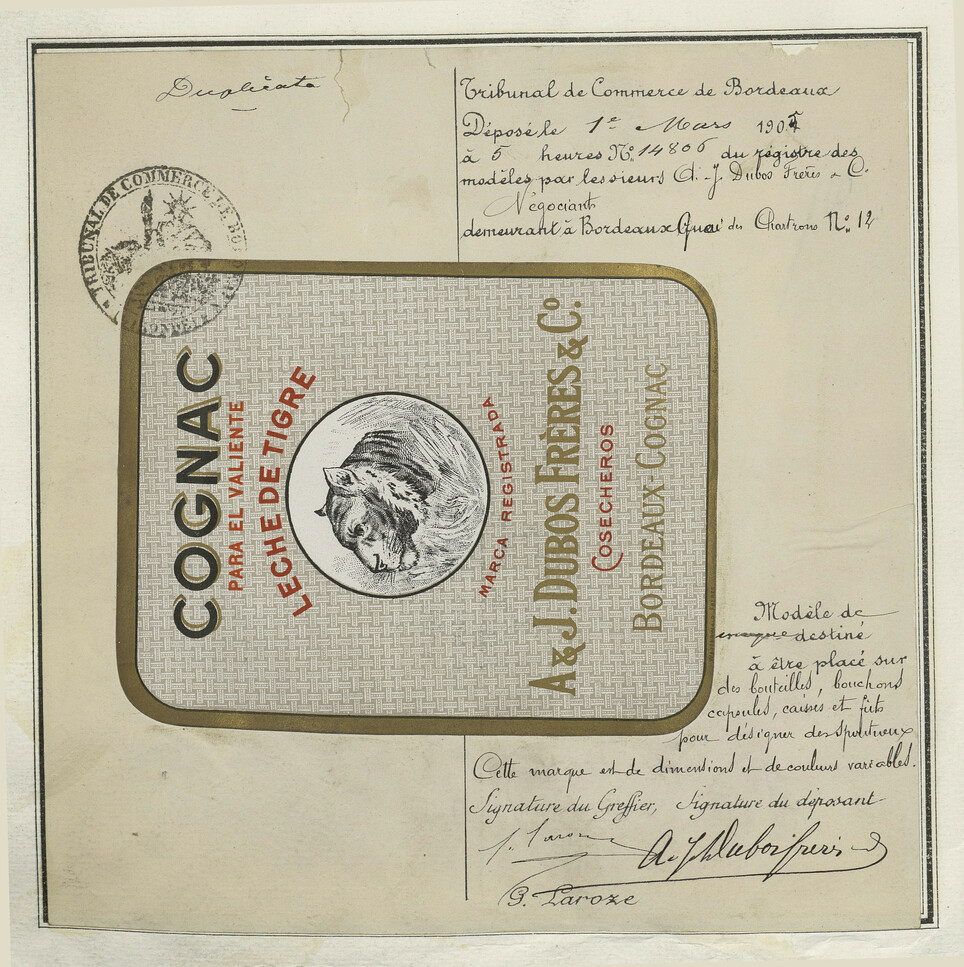 Duplicata
Tribunal de Commerce de Bordeaux
Déposé le 1er Mars 190
à 5 heures No. 14806 du régistre des
modèles par les sieurs A. & J. Dubos Frères & C.
Négociant
demeurant à Bordeaux Quai des Chartrons No. 12
TRIBUNAL DE COMMERCE DE BORDEAUX
COGNAC
PARA EL VALIENTE
LECHE DE TIGRE
MARCA REGISTRADA
A & J. DUBOS FRÈRES & Co.
COSECHEROS
BORDEAUX-COGNAC
Modèle de
marque destiné
à être placé sur
des bouteilles, bouchons
capsules, caisses et fûts
pour désigner des spiritueux
Cette marque est de dimensions et de couleurs variables.
Signature du Greffier, Signature du déposant
A & J Dubos frères
G. Laroze